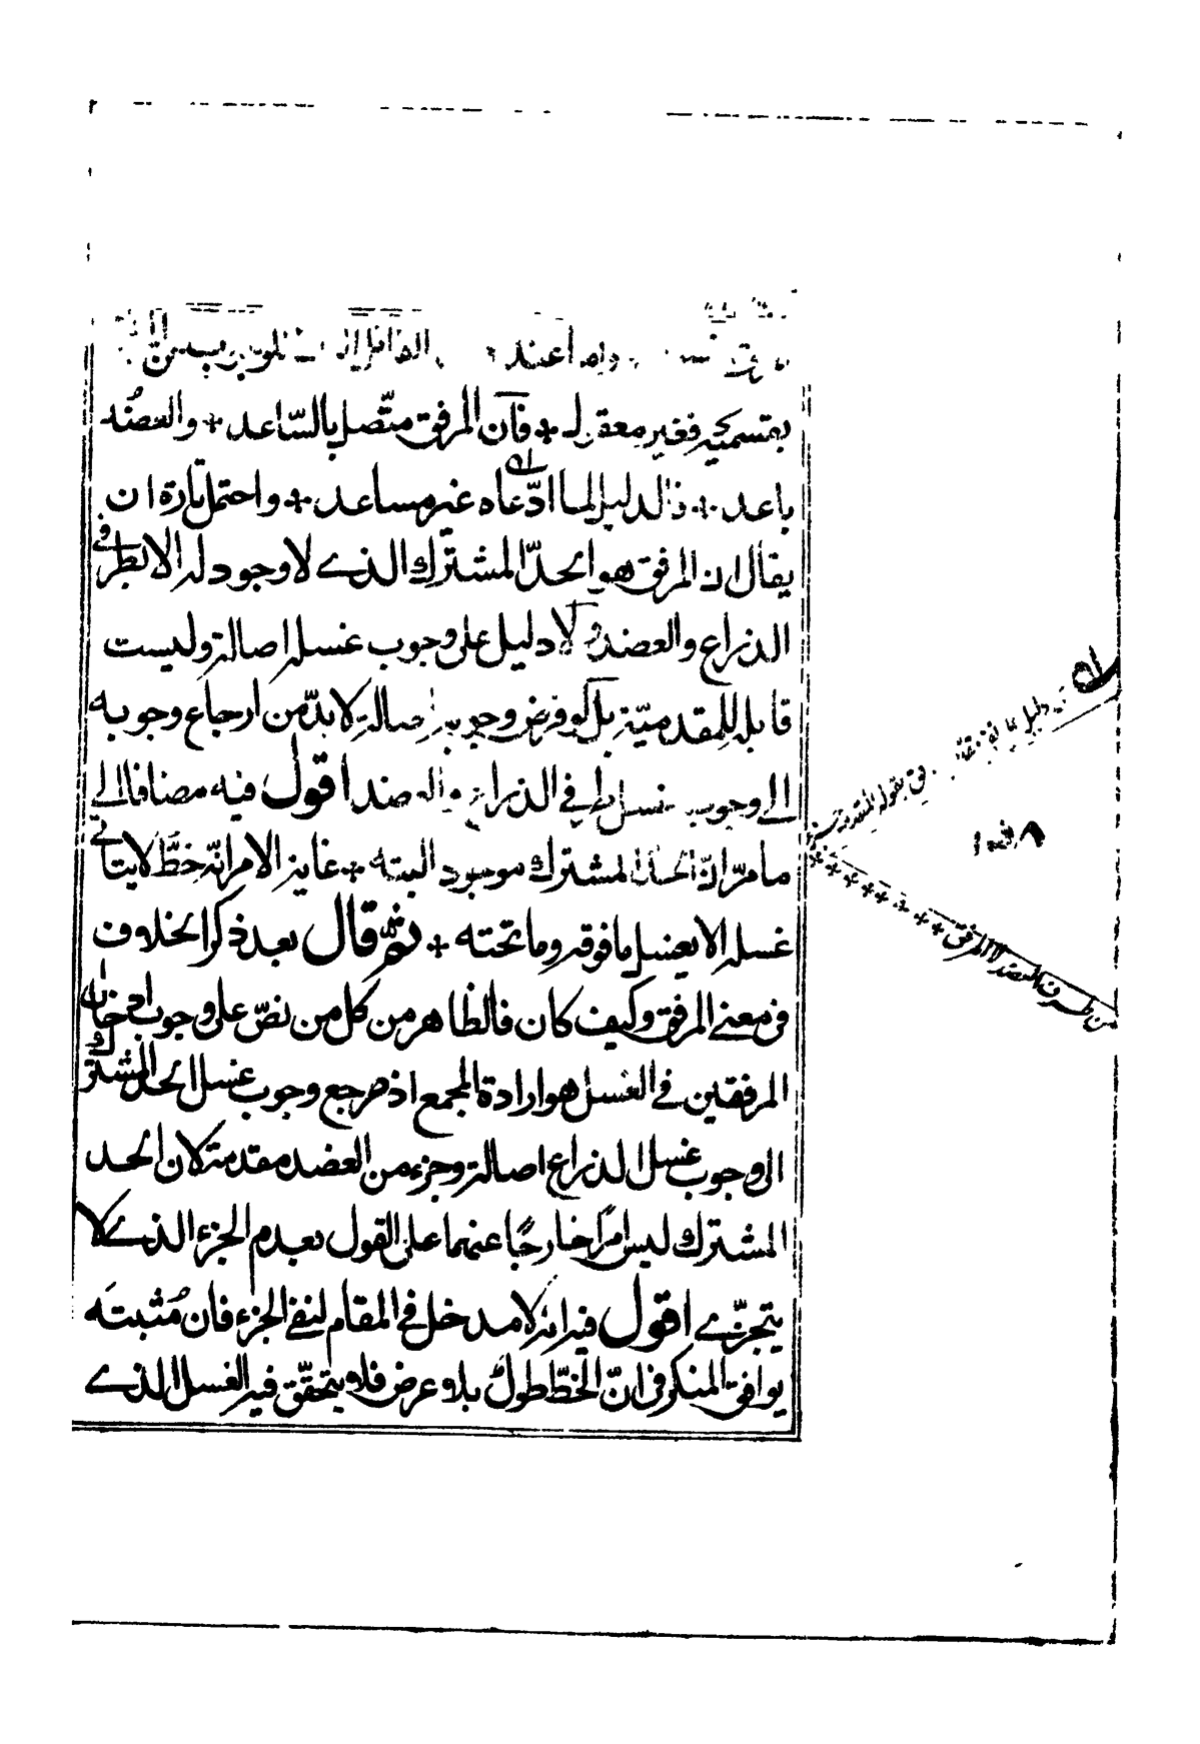 واما عند
بمتسميته فغير معقول + فان المرفق متّصل بالسّاعد + والعضُد
باعد + فالدليل لما ادّعاه غير مساعد + واحتمل تارة ان
يقال ان المرفق هو الحدّ المشترك الذے لا وجود له الا بطرفی
الذراع والعضد ولا دليل على وجوب غسله اصالة وليست
قابلة للمقدميّة بل لو فرض وجوبه اصالة لا بدّ من ارجاع وجوبه
الى وجوب غسل طرفي الذراع والعضد اقول فيه مضافا الى
ما مرّ انّ الحدّ المشترك موجود البته + غاية الامر انّه خطّ لا يتاتّى
غسله الا بغسل ما فوقه وما تحته + ثم قال بعد ذكر الخلاف
فى معنى المرفق وكيف كان فالظاهر من كل من نصّ على وجوب ادخال
المرفقين في الغسل هو ارادة المجمع اذ مرجع وجوب غسل الحد المشترك
الى وجوب غسل الذراع اصالة وجزء من العضد مقدمة لان الحد
المشترك ليس امرًا خارجًا عنهما على القول بعدم الجزء الذے لا
يتجزّے اقول فيه انه لا مدخل في المقام لنفى الجزء فان مُثبتَه
يوافق المنكر فى انّ الخطّ طولٌ بلا عرض فلا يتحقّق فيه الغسل الذے
من طرف العضد لا المرفق